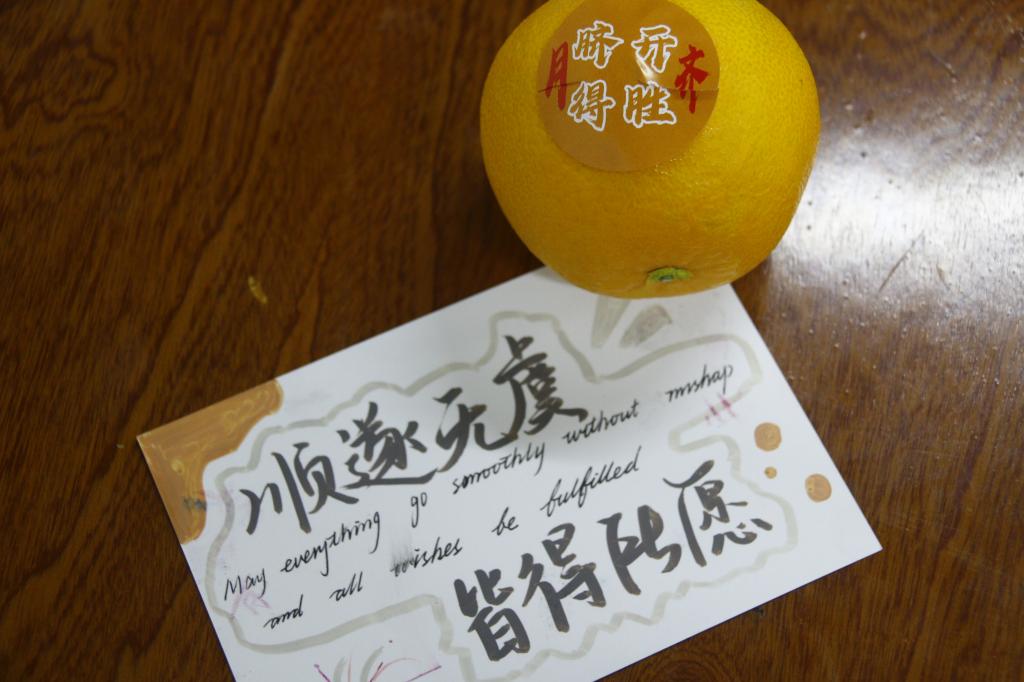 月 脐开 齐
得胜
顺遂无虞
May everything go smoothly without mishap
and all wishes be fulfilled
皆得所愿